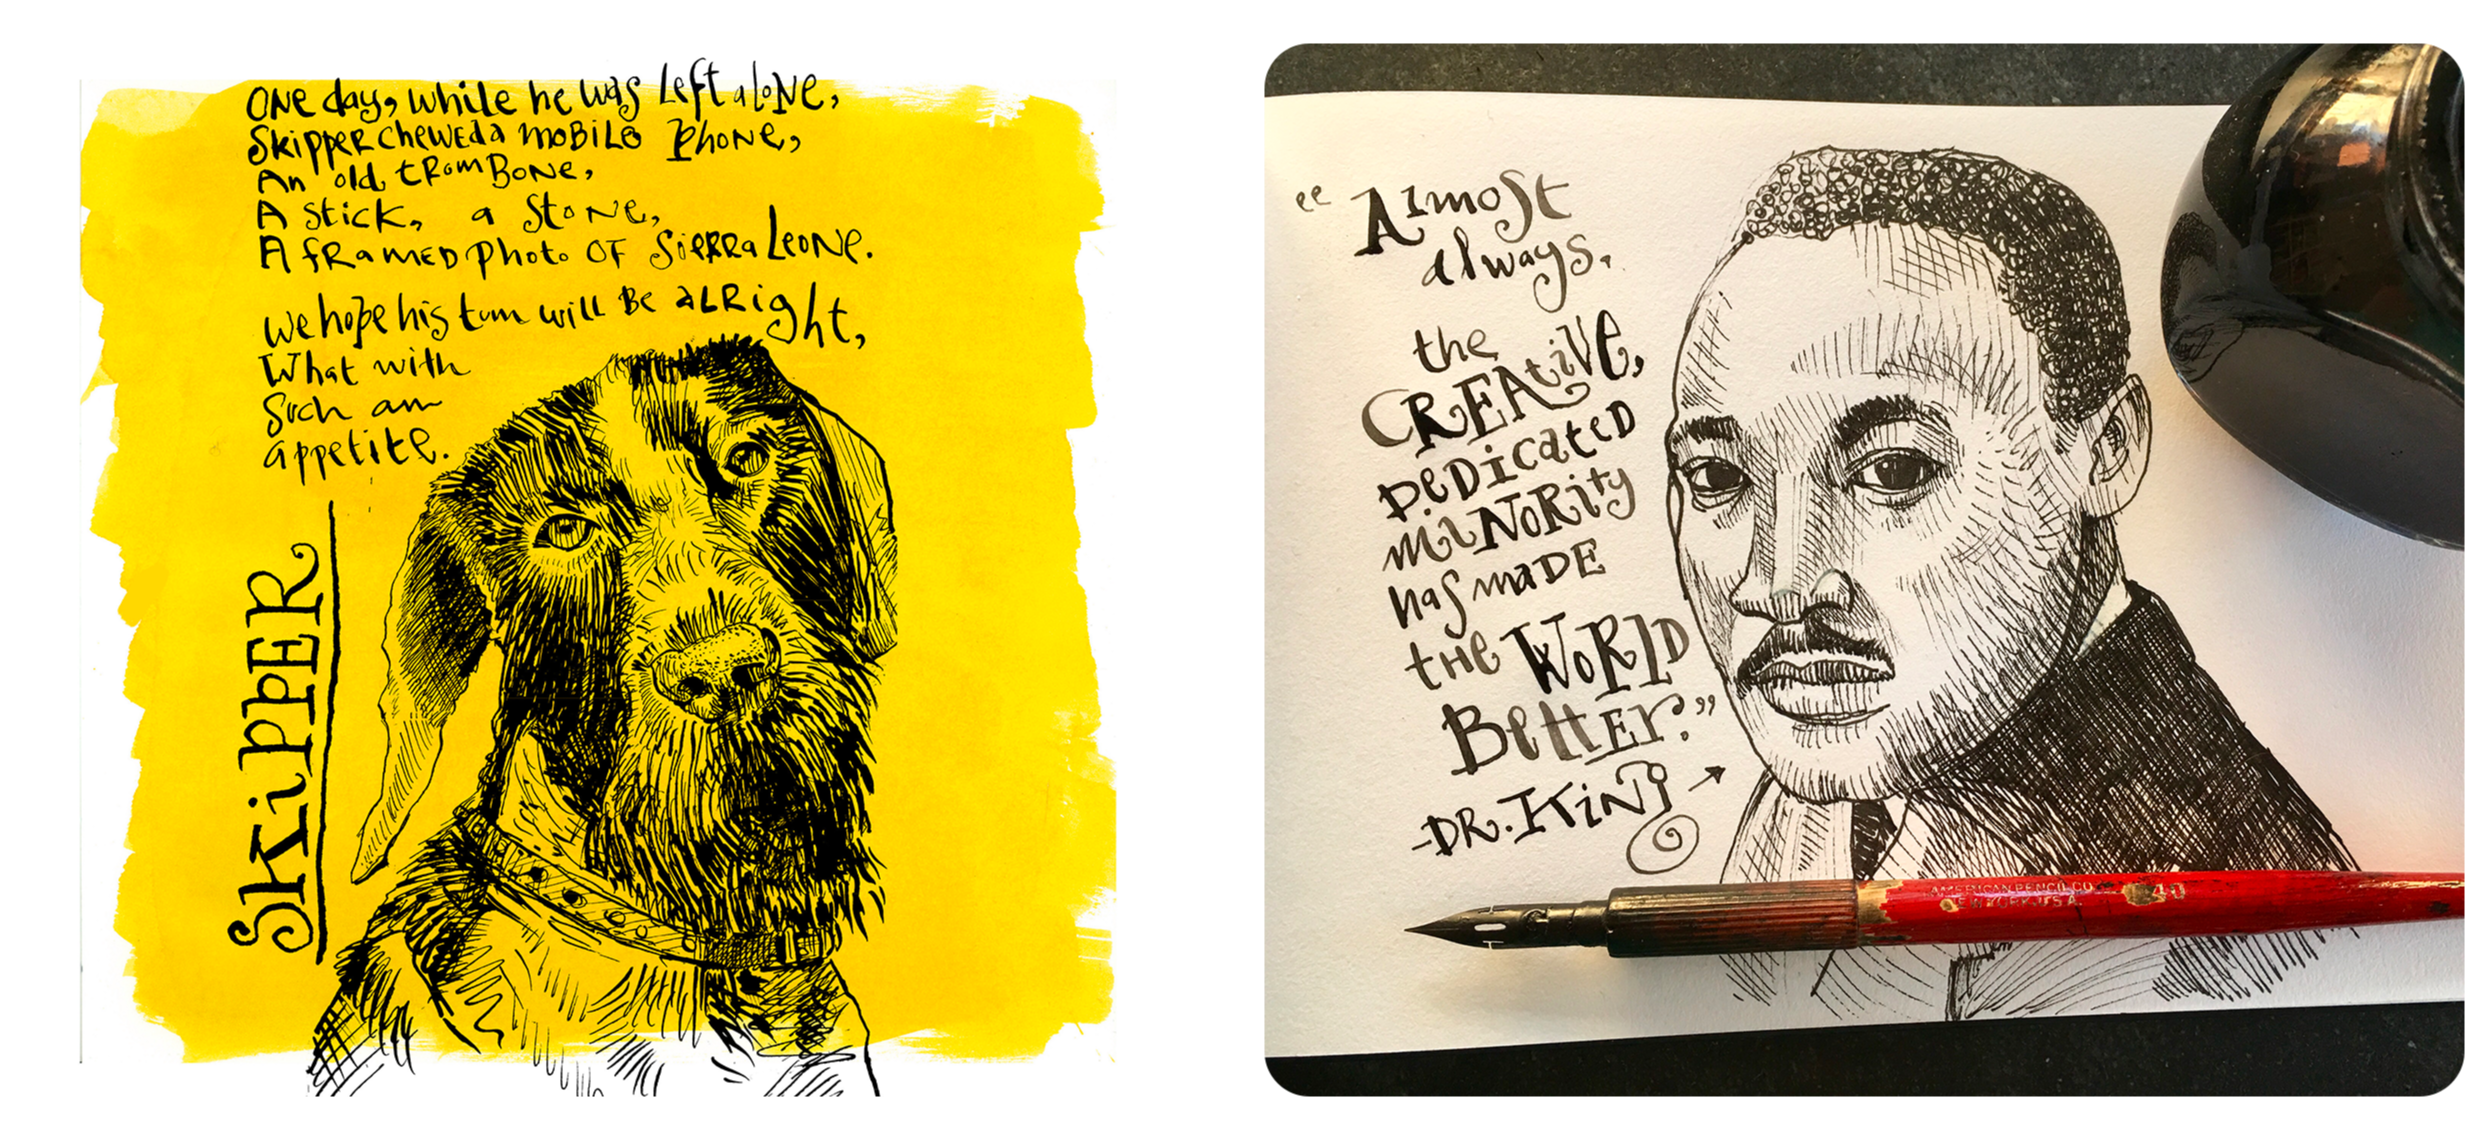 One day, while he was left alone,
Skipper chewed a mobile phone,
An old trombone,
A stick, a stone,
A framed photo of Sierra Leone.
We hope his tum will be alright,
What with
Such an
appetite.
SKiPPER
“Almost
always,
the
CREAtiVe,
DeDicated
miNORity
has maDE
the WoRlD
BettER.”
-DR. KiNG
AMERICAN PENCIL CO
NEW YORK U.S.A.